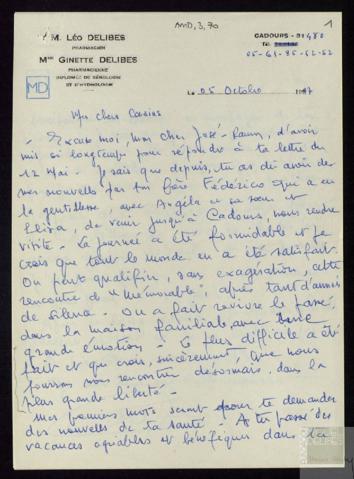 AMD, 3, 70
1
M. LÉO DELIBES
PHARMACIEN
Mme GINETTE DELIBES
PHARMACIENNE
DIPLOMÉE DE SÉROLOGIE
ET D'HYDROLOGIE
MD
CADOURS - 31480
05-61-85-62-52
LE 05 Octobre 19
Mes chers Cousins
Excuse moi, mon cher José-Ramon, d'avoir
mis si longtemps pour répondre à ta lettre du
12 Mai. Je sais que depuis, tu as dû avoir de
mes nouvelles par ton frère Fédérico qui a eu
la gentillesse, avec Angela sa soeur et
Elisa, de venir jusqu'à Cadours, nous rendre
visite. La journée a été formidable et je
crois que tout le monde en a été satisfait.
On peut qualifier, sans exagération, cette
rencontre de "Mémorable", après tant d'années
de silence. On a fait revivre le passé,
dans la maison familiale, avec
grande émotion. Le plus difficile a été
fait et je crois, sincèrement, que nous
pourrons nous rencontrer désormais, dans la
plus grande liberté.
Mes premiers mots seront pour te demander
des nouvelles de ta santé. As tu passé des
vacances agréables et bénéfiques dans ta